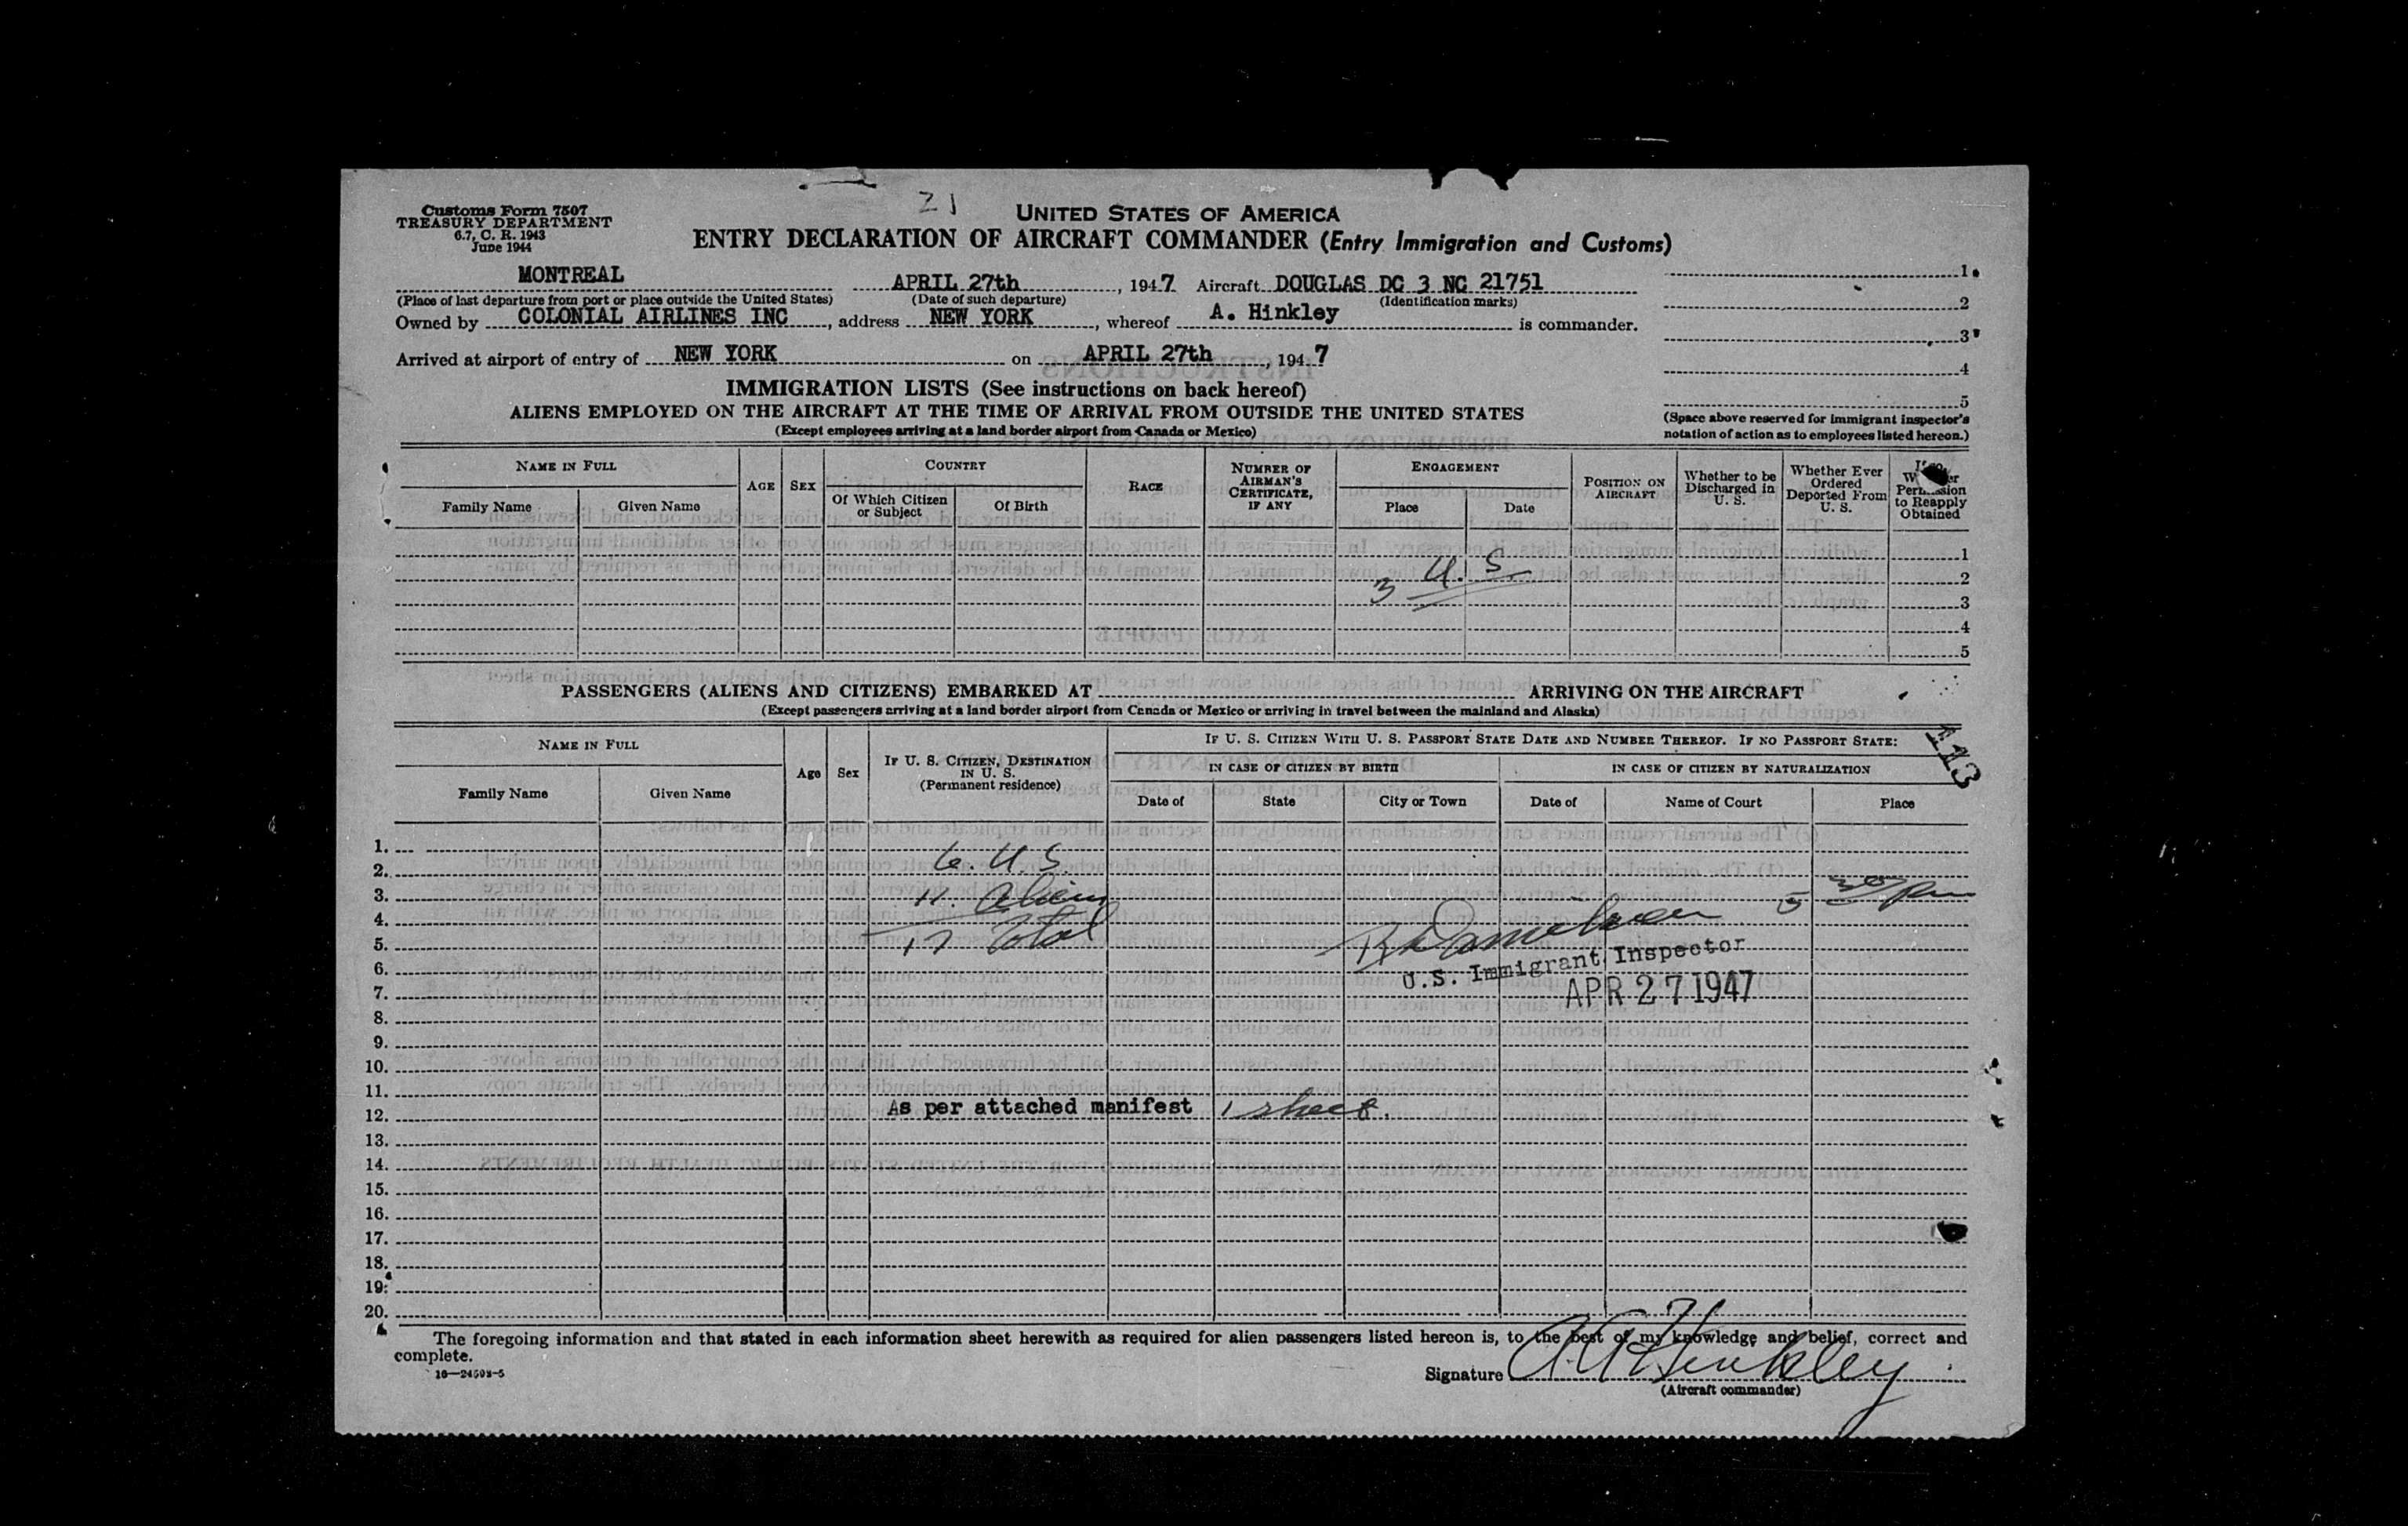 21
Customs Form 7507
TREASURY DEPARTMENT
6.7, C. R. 1943
June 1944
UNITED STATES OF AMERICA
ENTRY DECLARATION OF AIRCRAFT COMMANDER (Entry Immigration and Customs)
MONTREAL APRIL 27th, 1947 Aircraft DOUGLAS DC 3 NC 21751
(Place of last departure from port or place outside the United States) (Date of such departure) (Identification marks)
Owned by COLONIAL AIRLINES INC, address NEW YORK, whereof A. Hinkley is commander.
Arrived at airport of entry of NEW YORK on APRIL 27th, 1947
1
2
3
4
5
(Space above reserved for immigrant inspector's
notation of action as to employees listed hereon.)
IMMIGRATION LISTS (See instructions on back hereof)
ALIENS EMPLOYED ON THE AIRCRAFT AT THE TIME OF ARRIVAL FROM OUTSIDE THE UNITED STATES
(Except employees arriving at a land border airport from Canada or Mexico)
NAME IN FULL
Family Name Given Name
AGE SEX
COUNTRY
Of Which Citizen or Subject
Of Birth
RACE
NUMBER OF AIRMAN'S CERTIFICATE, IF ANY
ENGAGEMENT
Place Date
POSITION ON AIRCRAFT
Whether to be Discharged in U. S.
Whether Ever Ordered Deported From U. S.
to Reapply Obtained
1
2
3
4
5
3 U. S.
PASSENGERS (ALIENS AND CITIZENS) EMBARKED AT ARRIVING ON THE AIRCRAFT
(Except passengers arriving at a land border airport from Canada or Mexico or arriving in travel between the mainland and Alaska)
113
NAME IN FULL
Family Name Given Name
Age Sex
IF U. S. CITIZEN, DESTINATION IN U. S.
(Permanent residence)
IF U. S. CITIZEN WITH U. S. PASSPORT STATE DATE AND NUMBER THEREOF. IF NO PASSPORT STATE:
IN CASE OF CITIZEN BY BIRTH IN CASE OF CITIZEN BY NATURALIZATION
Date of State City or Town Date of Name of Court Place
1.
2. 6. U S.
3. 11. Aliens
4. 5 30/pm
5. 17 Total
6. U.S. Immigrant Inspector
7. APR 27 1947
8.
9.
10.
11.
12. As per attached manifest 1 sheet.
13.
14.
15.
16.
17.
18.
19.
20.
The foregoing information and that stated in each information sheet herewith as required for alien passengers listed hereon is, to the best of my knowledge and belief, correct and
complete.
16—24598-5
Signature A A Hinkley
(Aircraft commander)